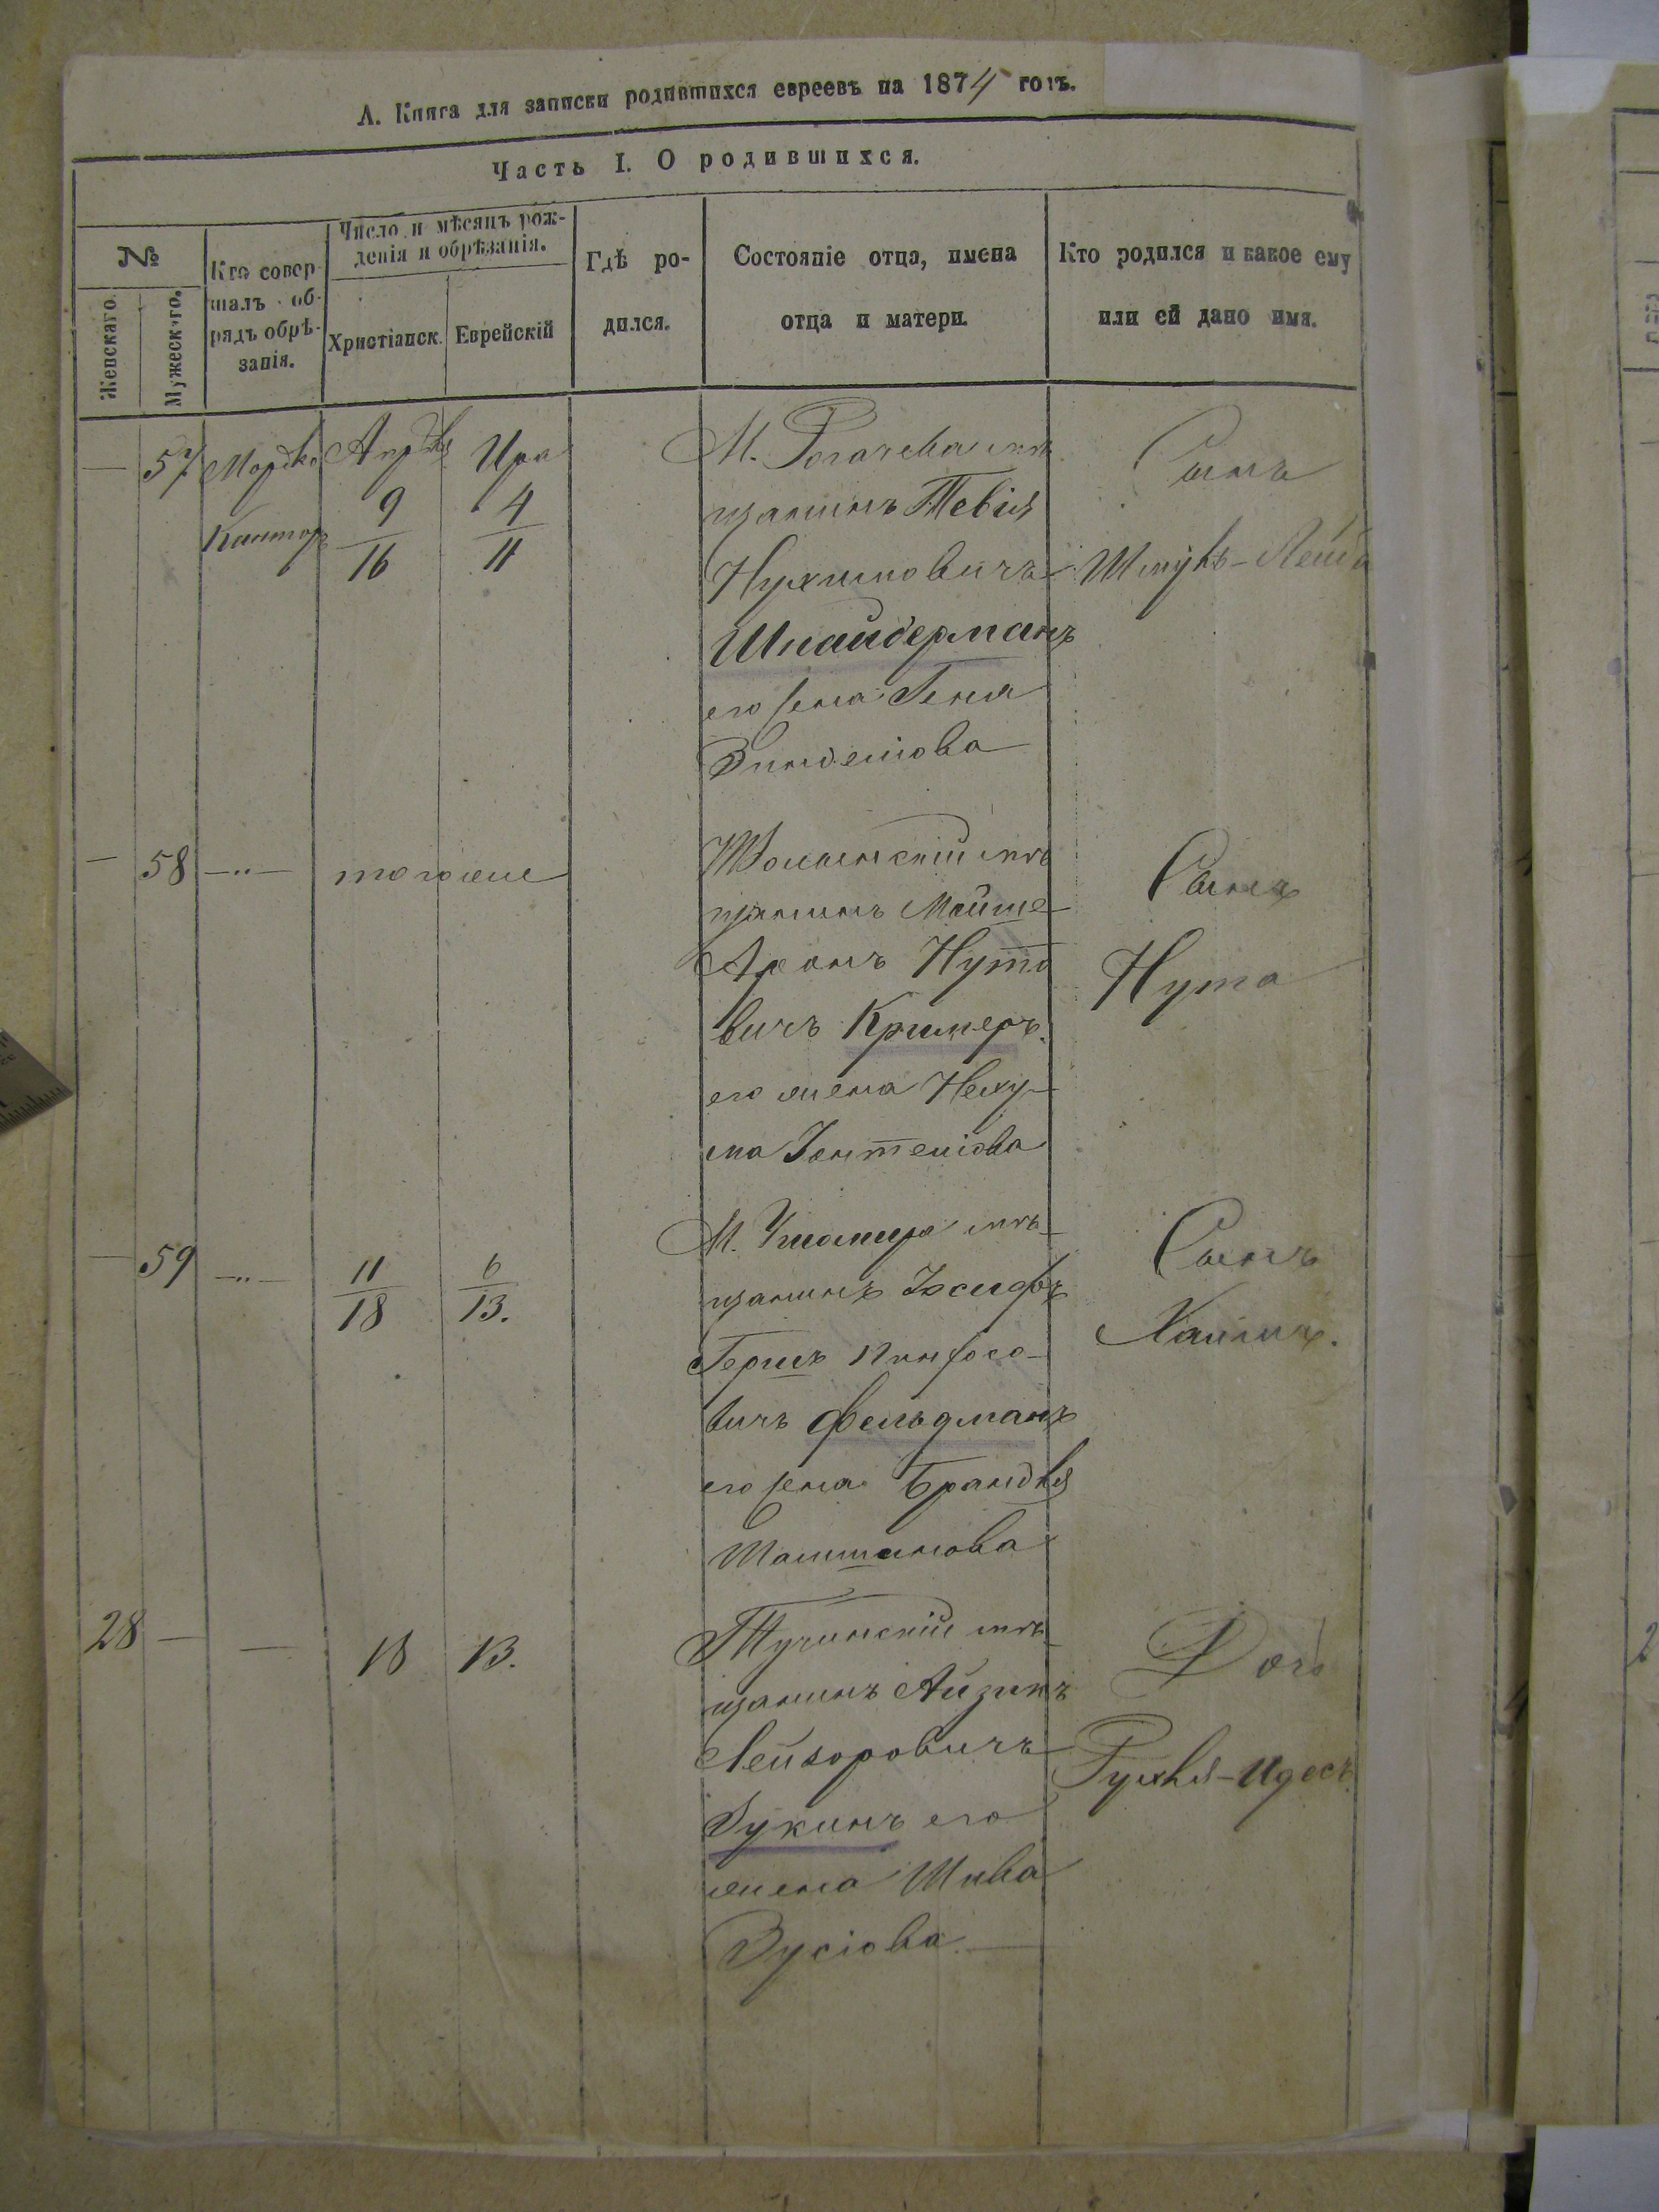 А. Книга для записки родившихся евреевъ на 1874 годъ.
Часть I. О родившихся.
№
Женскаго.
Мужескаго.
Кто совер-
шалъ об-
рядъ обрѣ-
занія.
Число и мѣсяцъ рож-
денія и обрѣзанія.
Христіанск.
Еврейскій
Гдѣ ро-
дился.
Состояніе отца, имена
отца и матери.
Кто родился и какое ему
или ей дано имя.
— 57 Мордко Кантор
Апрѣля
9
16
Ира
4
11
М. Рогачева мѣ
щанинъ Тевія
Нухимовичъ
Шнайдерманъ
его жена Геня
Зинделіова
Сынъ
Шмуль-Лейба
— 58 —"— тогоже
Волынскій мѣ
щанинъ Мойше-
Аронъ Нуто
вичъ Кримеръ.
его жена Неху-
ма Іонтеліова
Сынъ
Нута
— 59 —"—
11
18
6
13.
М. Ушомира мѣ-
щанинъ Іосифъ
Гершъ Пинхосо-
вичъ Фельдманъ
его жена Брандля
Сынъ
Хаимъ.
28 — — 18 13.
Тучинскій мѣ-
щанинъ Айзикъ
Лейзоровичъ
Зукинъ его
жена Шива
Зусіова. —
Дочь
Рухля-Идесъ